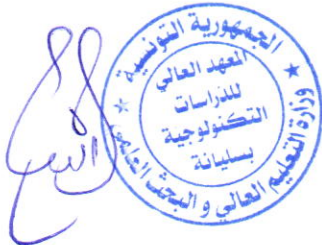 الجمهورية التونسية
وزارة التعليم العالي و البحث العلمي
المعهد العالي
للدراسات
التكنولوجية
بسليانة